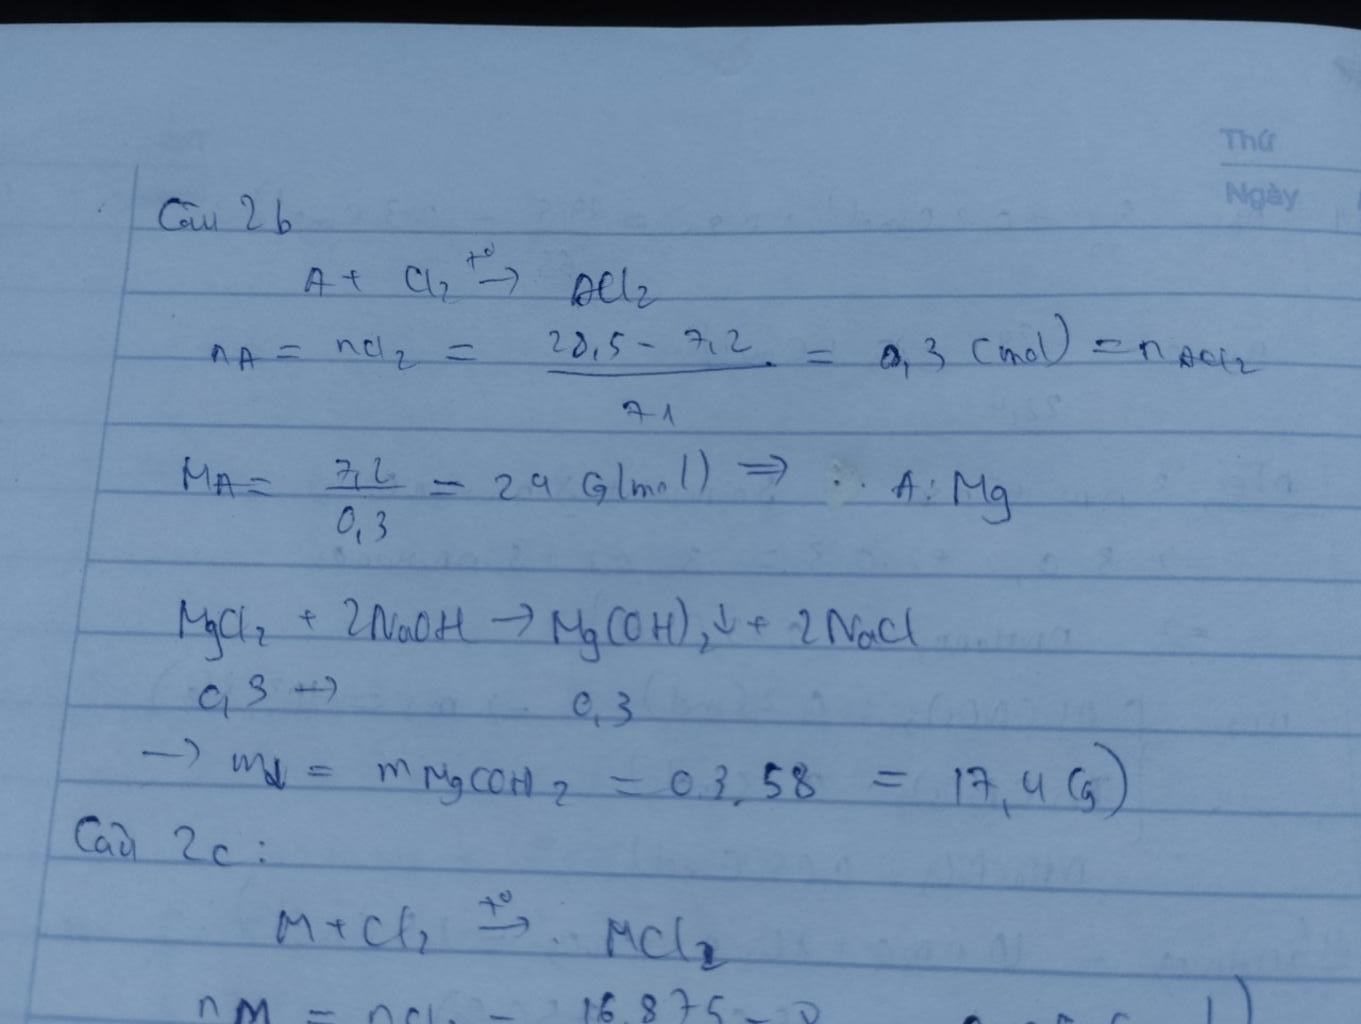 Thứ
Ngày
Câu 2b
A + Cl₂ →t° ACl₂
nA = nCl₂ = (28,5 - 7,2) / 71 = 0,3 (mol) = nACl₂
MA = 7,2 / 0,3 = 24 G/mol) ⇒ A: Mg
MgCl₂ + 2NaOH → Mg(OH)₂↓ + 2NaCl
0,3 → 0,3
→ m↓ = mMg(OH)₂ = 0,3.58 = 17,4 (G)
Câu 2c:
M + Cl₂ →t° MCl₂
nM = nCl₂ = 16,875 -